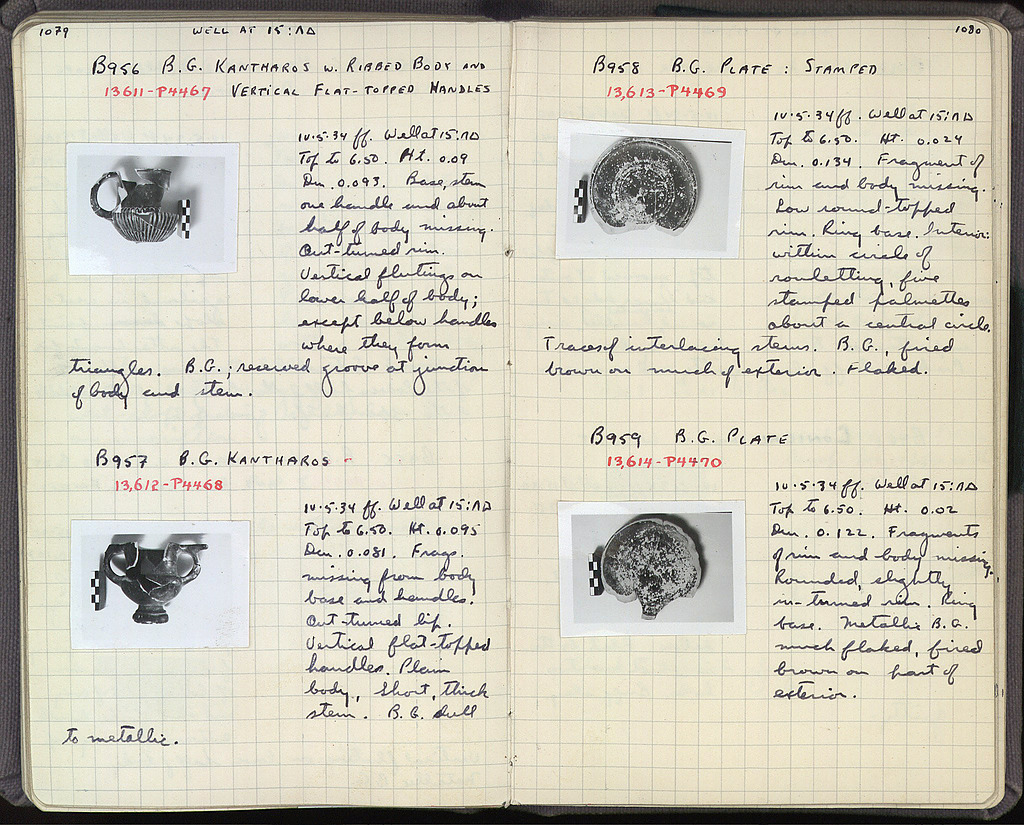 1079
WELL AT 15:ΛΔ
B956 B.G. KANTHAROS W. RIBBED BODY AND
13611-P4467 VERTICAL FLAT-TOPPED HANDLES
IV.5.34 ff. Well at 15:ΛΔ
Top to 6.50. Ht. 0.09
Dm. 0.093. Base, stem
one handle and about
half of body missing.
Out-turned rim.
Vertical flutings on
lower half of body;
except below handles
where they form
triangles. B.G.; reserved groove at junction
of body and stem.
B957 B.G. KANTHAROS -
13,612-P4468
IV.5.34 ff. Well at 15:ΛΔ
Top to 6.50. Ht. 0.095
Dm. 0.081. Frags.
missing from body
base and handles.
Out-turned lip.
Vertical flat-topped
handles. Plain
body, short, thick
stem. B.G. dull
to metallic.
1080
B958 B.G. PLATE : STAMPED
13,613-P4469
IV.5.34 ff. Well at 15:ΛΔ
Top to 6.50. Ht. 0.024
Dm. 0.134. Fragment of
rim and body missing.
Low round-topped
rim. Ring base. Interior:
within circle of
rouletting, five
stamped palmettes
about a central circle.
Traces of interlacing stems. B.G., fired
brown on much of exterior. Flaked.
B959 B.G. PLATE
13,614-P4470
IV.5.34 ff. Well at 15:ΛΔ
Top to 6.50. Ht. 0.02
Dm. 0.122. Fragments
of rim and body missing.
Rounded, slightly
in-turned rim. Ring
base. Metallic B.G.
much flaked, fired
brown on part of
exterior.